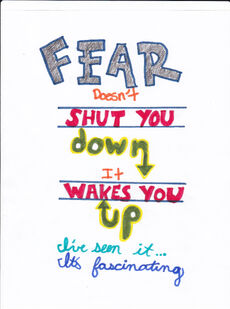 FEAR
Doesn't
SHUT YOU
down
It
WAKES YOU
up
I've seen it...
It's fascinating